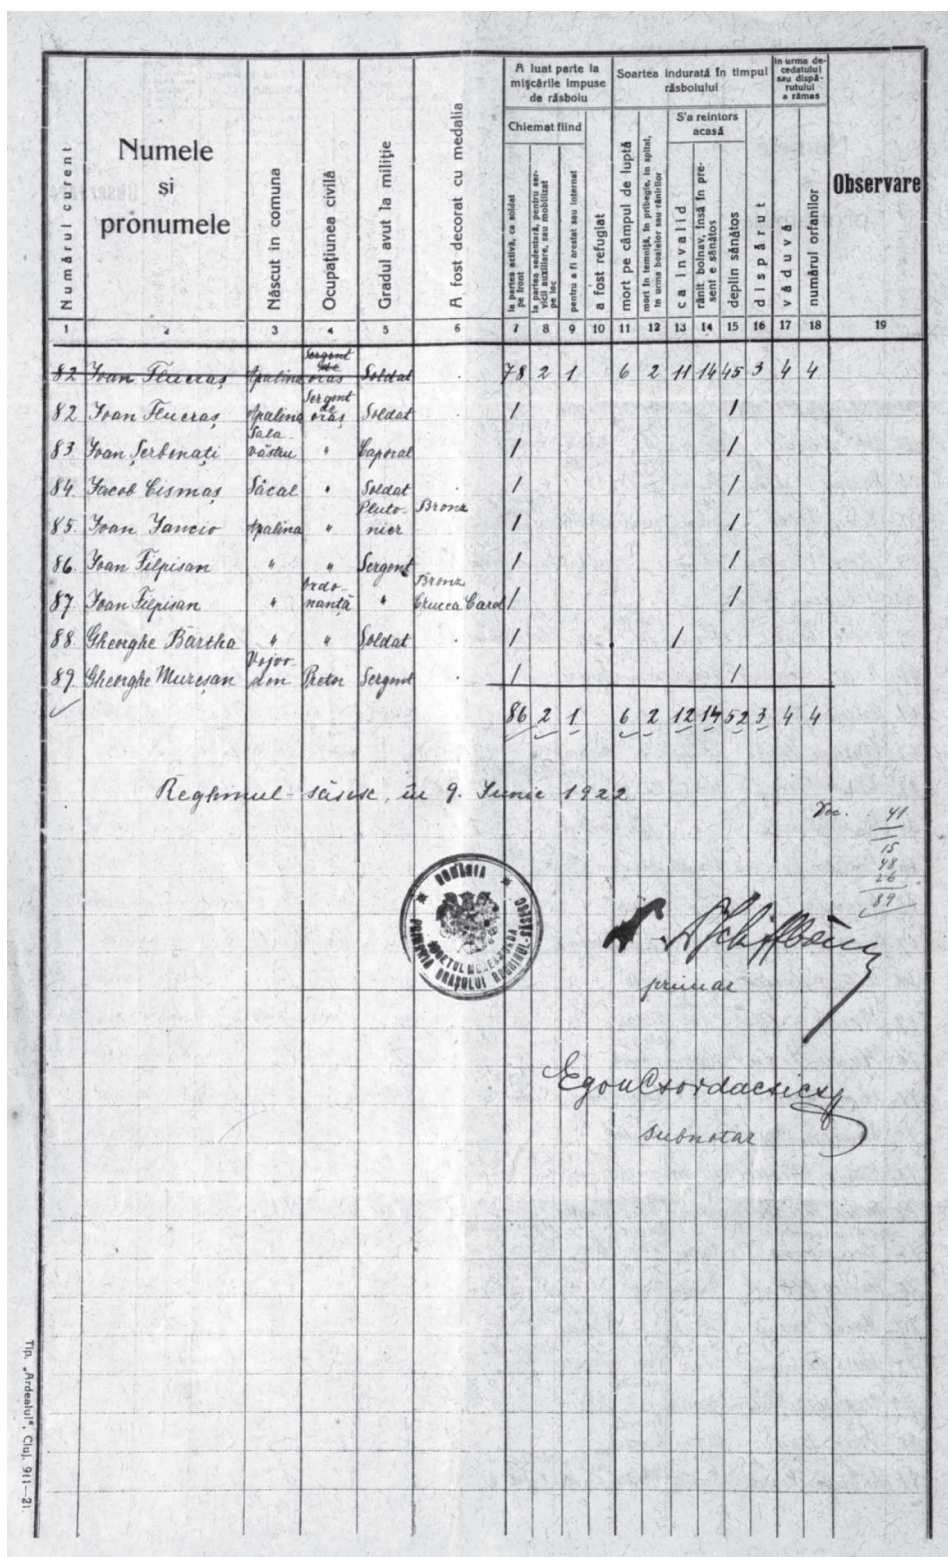 Numărul curent
Numele
și
pronumele
Născut în comuna
Ocupațiunea civilă
Gradul avut la miliție
A fost decorat cu medalia
A luat parte la
mișcările impuse
de răsboiu
Chiemat fiind
la partea activă, ca soldat
pe front
la partea sedentară, pentru ser-
vicii auxiliare, sau mobilizat
pe loc
pentru a fi arestat sau internat
a fost refugiat
Soartea indurată în timpul
răsboiului
mort pe câmpul de luptă
mort în temniță, în pribegie, în spital,
in urma boalelor sau rănirilor
S'a reintors
acasă
ca invalid
rănit bolnav, însă în pre-
sent e sănătos
deplin sănătos
dispărut
In urma de-
cedatului
sau dispă-
rutului
a rămas
văduvă
numărul orfanilor
Observare
1 2 3 4 5 6 7 8 9 10 11 12 13 14 15 16 17 18 19
82 Ioan Flueraș Apalina Sergent de oraș Soldat . 78 2 1 6 2 11 14 45 3 4 4
82 Ioan Flueraș Apalina Sergent de oraș Soldat . 1 1
83. Ioan Șerbonați Sala-văstru " Caporal . 1 1
84. Iacob Cismaș Săcal " Soldat . 1 1
85. Ioan Iancio Apalina " Pluto-nier Bronz 1 1
86. Ioan Filpisan " " Sergent . 1 1
87. Ioan Filpisan " Ordo-nanță " Bronz Crucea Carol 1 1
88. Gheorghe Bartha " " Soldat . 1 1
89. Gheorghe Mureșan Vojvo-den Pretor Sergent . 1 1
86 2 1 6 2 12 14 52 3 4 4
Reghinul-săsesc, în 9. Iunie 1922
41
15
48
26
89
ROMÂNIA
PRIMĂRIA ORAȘULUI REGHINUL-SĂSESC
primar
Egon Csordacsics
subnotar
Tip. „Ardealul", Cluj. 911—21.